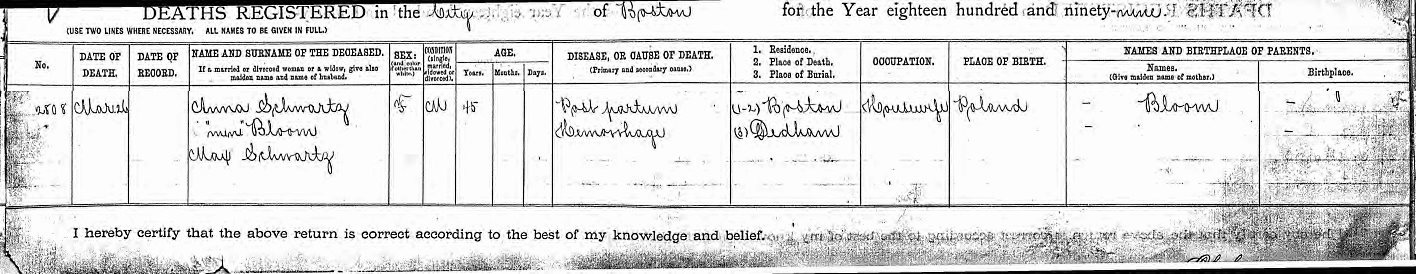 DEATHS REGISTERED in the City of Boston for the Year eighteen hundred and ninety-nine.
(USE TWO LINES WHERE NECESSARY. ALL NAMES TO BE GIVEN IN FULL.)
No.
DATE OF DEATH.
DATE OF RECORD.
NAME AND SURNAME OF THE DECEASED.
If a married or divorced woman or a widow, give also maiden name and name of husband.
SEX: (and color if other than white.)
CONDITION (single, married, widowed or divorced).
AGE.
Years. Months. Days.
DISEASE, OR CAUSE OF DEATH.
(Primary and secondary cause.)
1. Residence.
2. Place of Death.
3. Place of Burial.
OCCUPATION.
PLACE OF BIRTH.
NAMES AND BIRTHPLACE OF PARENTS.
Names.
(Give maiden name of mother.)
Birthplace.
2808 Mar 26 Anna Schwartz F M 45 Post partum (1-2) Boston Housewife Poland - Bloom -
Bloom Hemorrhage (3) Dedham - -
Max Schwartz
I hereby certify that the above return is correct according to the best of my knowledge and belief.